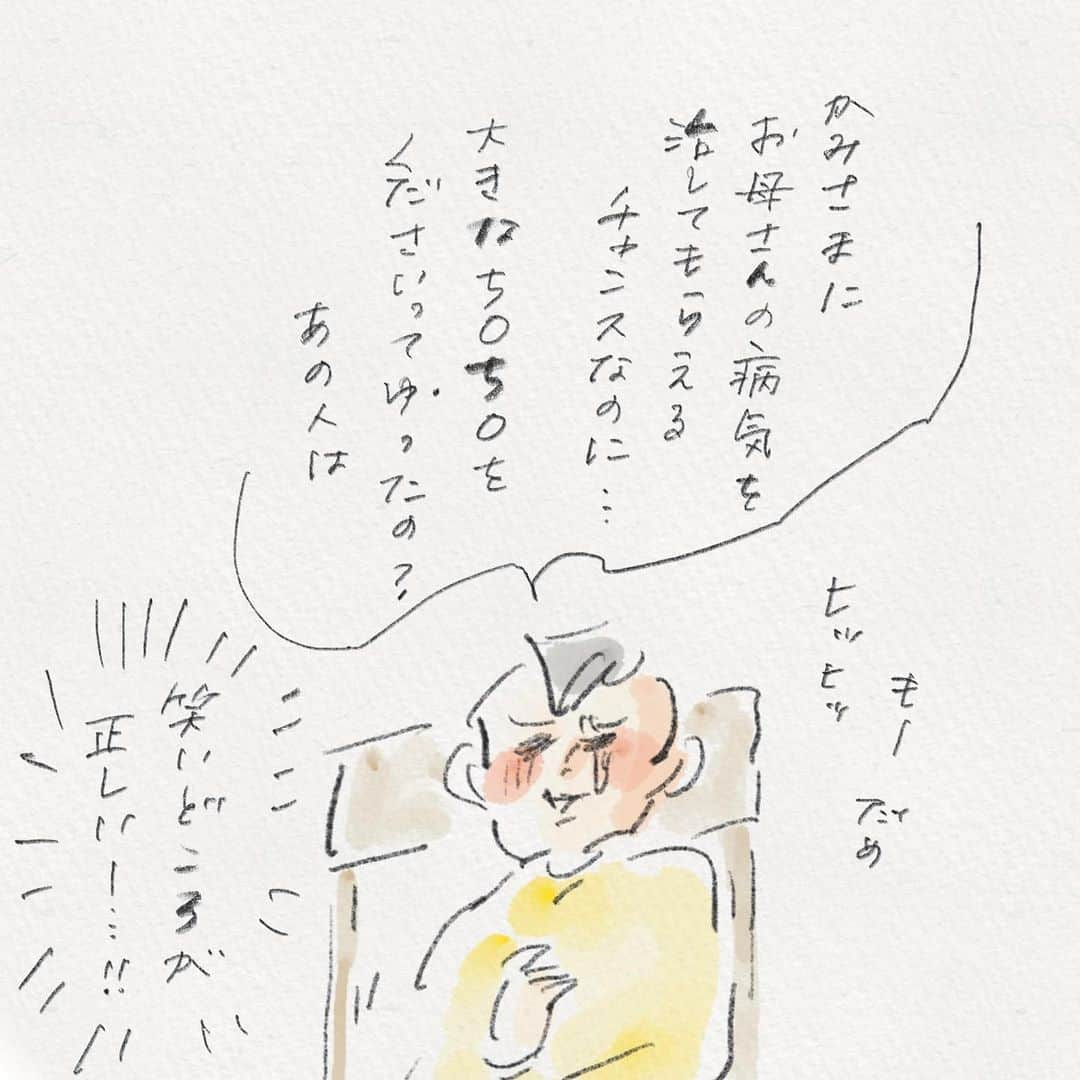 かみさまに
お母さんの病気を
治してもらえる
チャンスなのに…
大きなち○ち○を
くださいってゆったの？
あの人は
もー だめ
ヒッヒッ
笑いどころが
正しいー…!!